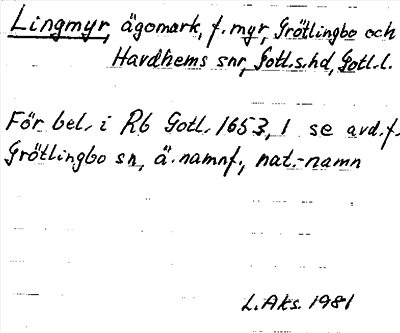 Lingmyr, ägomark, f. myr, Grötlingbo och
Havdhems snr, Gotl.s.hd, Gotl.l.
För bel. i Rb Gotl. 1653, 1 se avd. f.
Grötlingbo sn, ä. namnf., nat.-namn
L. Aks. 1981